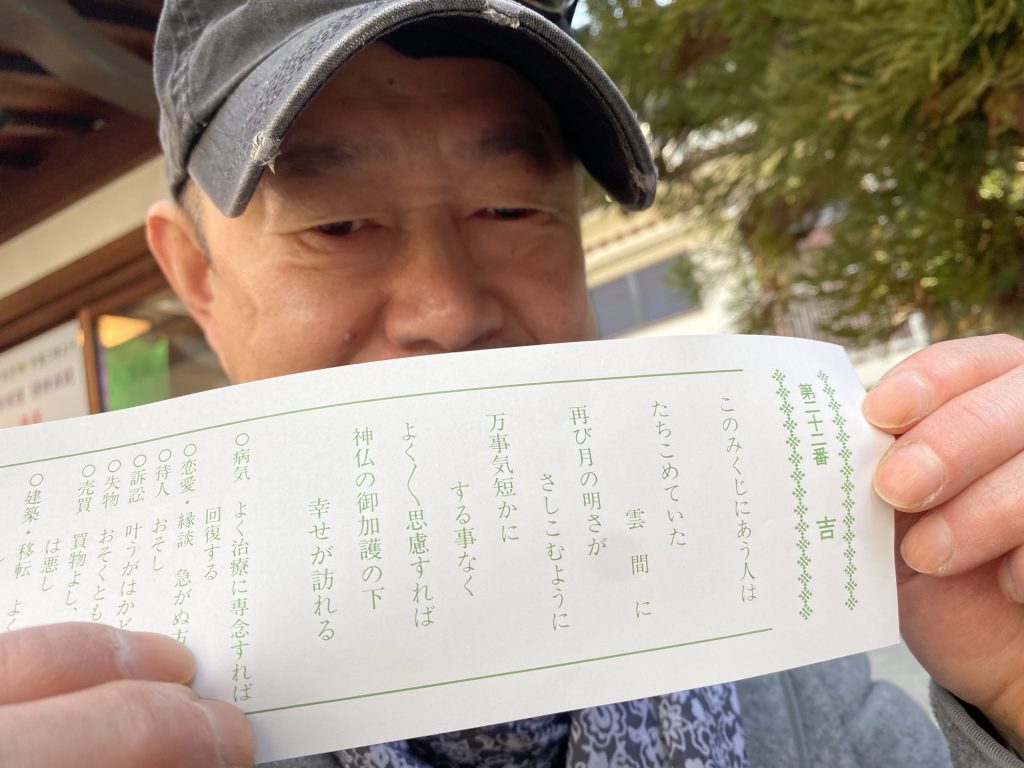 第二十二番 吉
このみくじにあう人は
たちこめていた
雲間に
再び月の明さが
さしこむように
万事気短かに
する事なく
よく〱思慮すれば
神仏の御加護の下
幸せが訪れる
○病気 よく治療に専念すれば
回復する
○恋愛・縁談 急がぬ方
○待人 おそし
○訴訟 叶うがはかど
○失物 おそくとも
○売買 買物よし、
は悪し
○建築・移転 よく